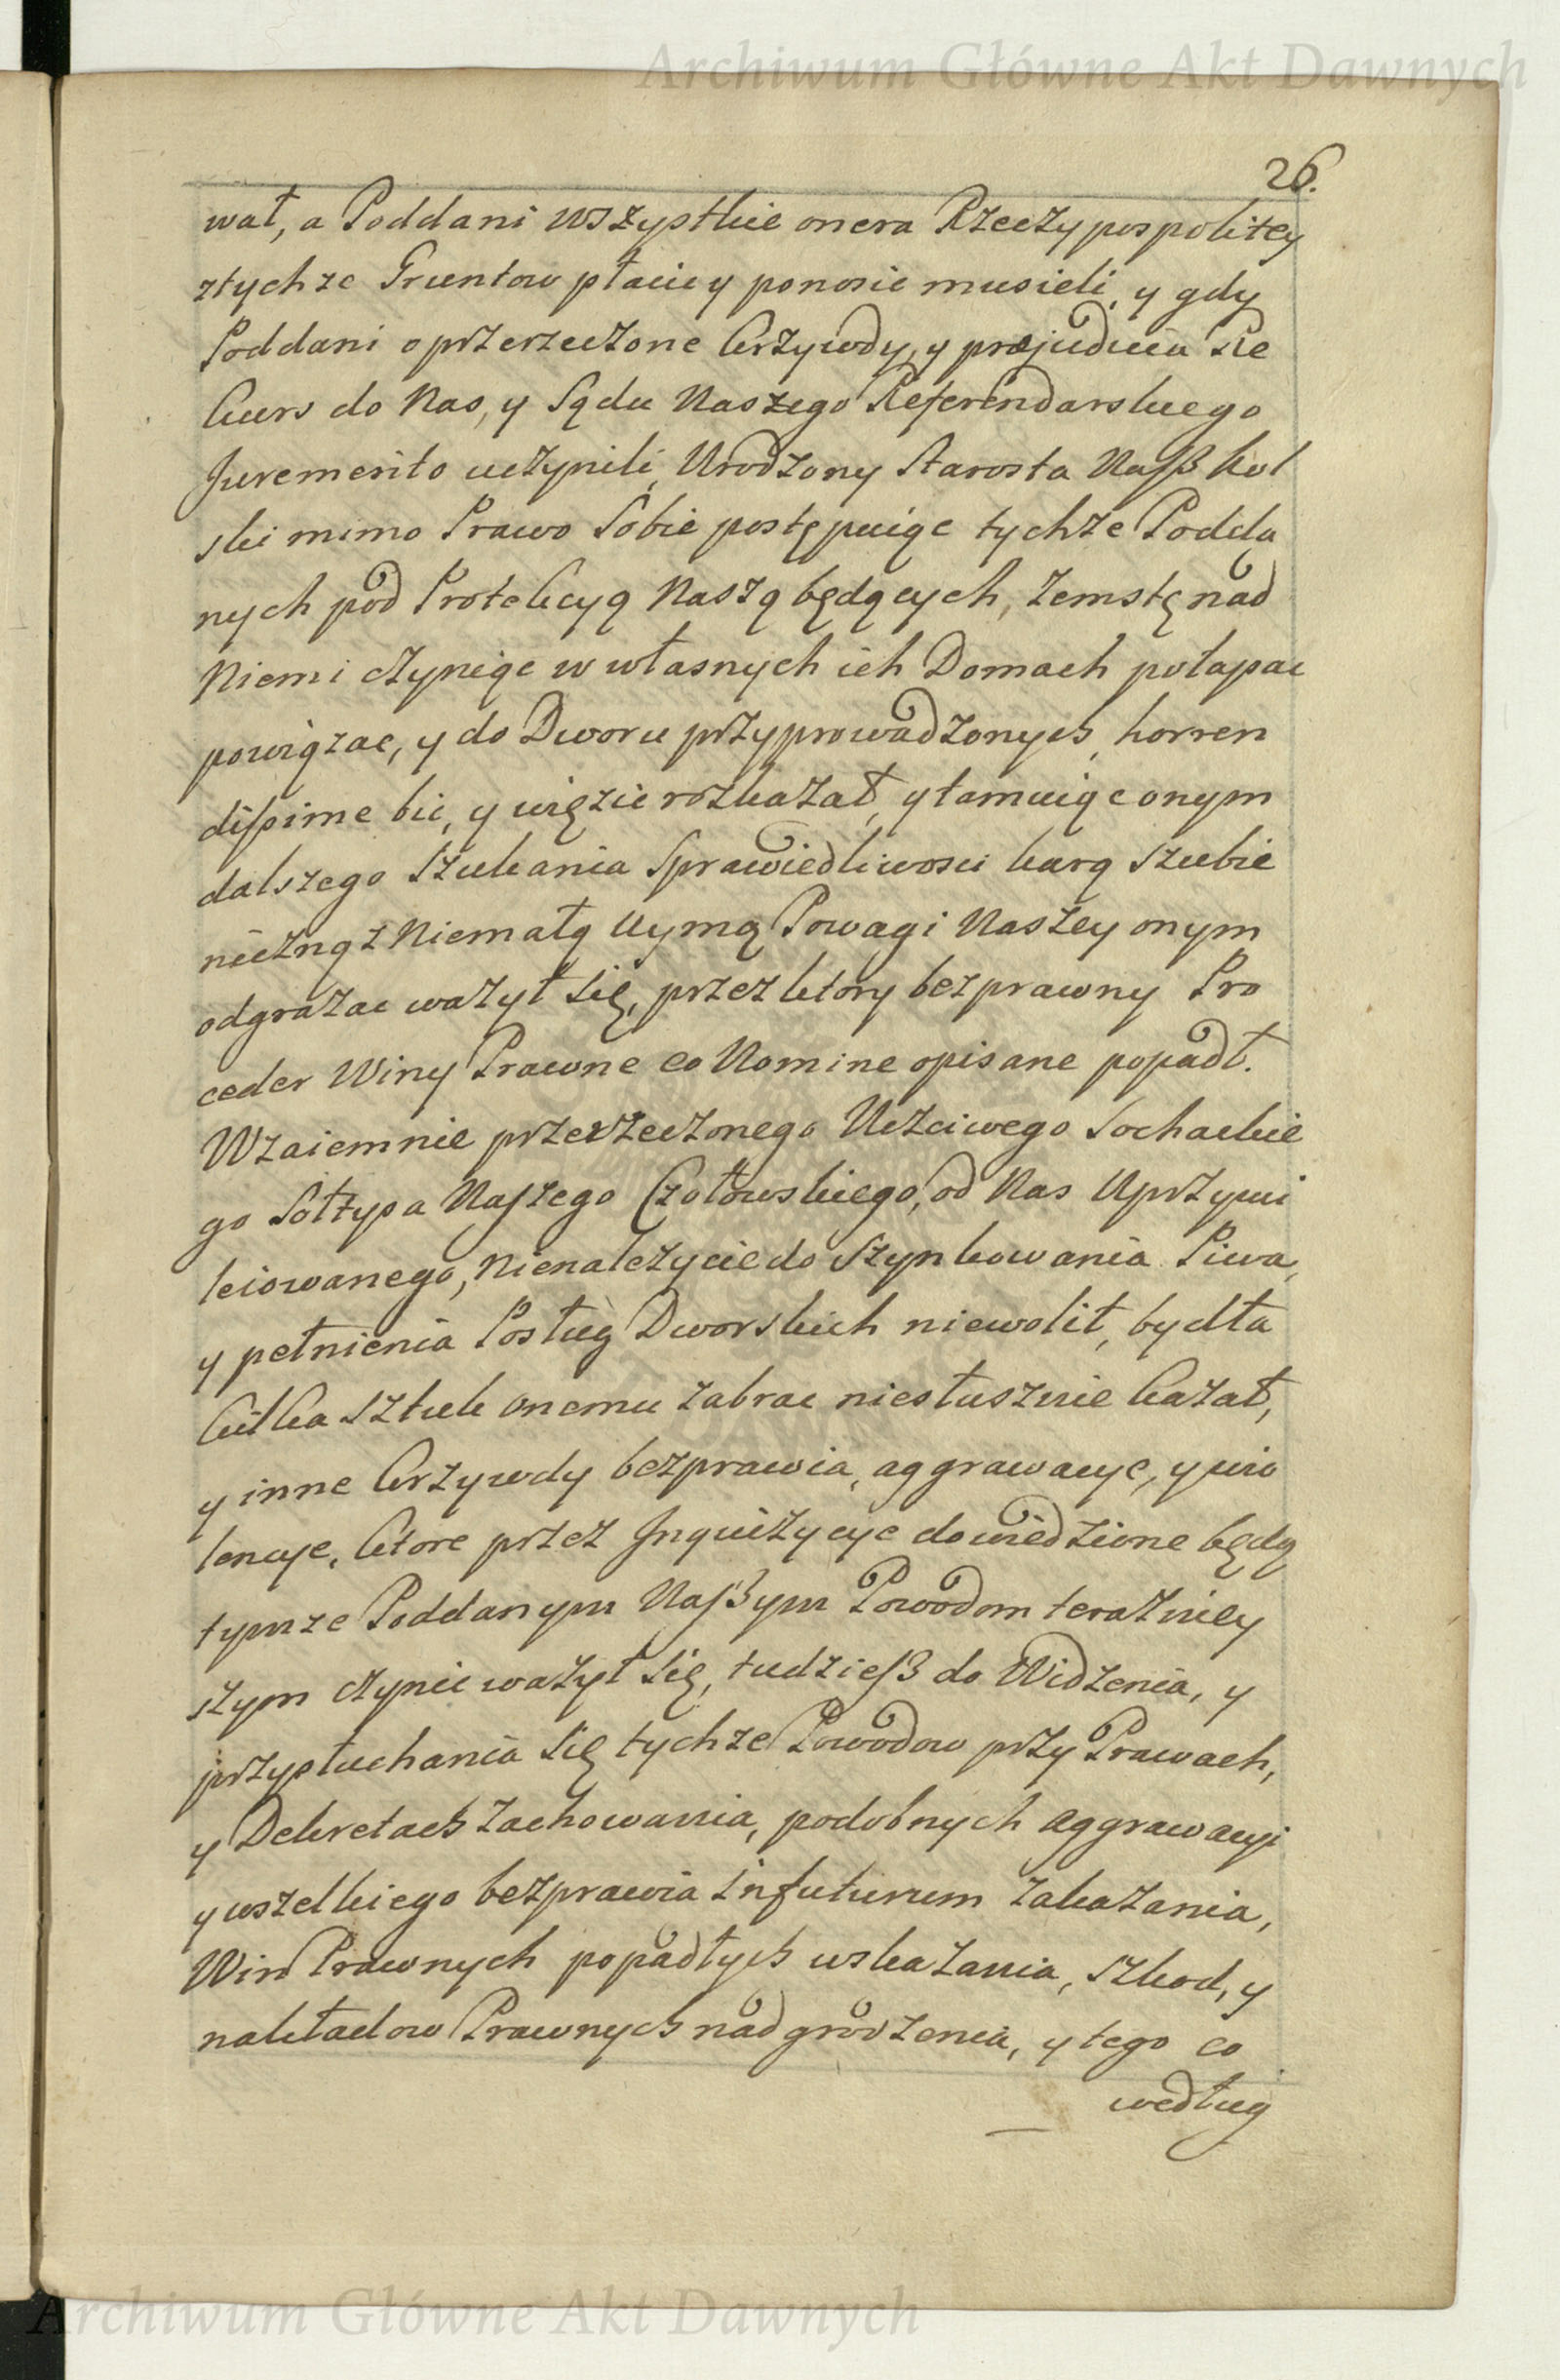 Archiwum Główne Akt Dawnych
26.
wał, a Poddani wszystkie onera Rzeczypospolitey
ztychze Gruntow płacic y ponosic musieli, y gdy
Poddani o przerzeczone krzywdy, y præjudicia Re
kurs do Nas, y Sądu Naszego Referendarskiego
Juremerito uczynili, Urodzony Starosta Naſß Kol
ski mimo Prawo Sobie postępuiąc tychże Podda
nych pod Protekcyą Naszą będących, zemstę nad
Niemi czyniąc w własnych ich Domach połapac
powiązac, y do Dworu przyprowadzonych, horren
diſsime bic, y więzic rozkazał, y tamuiąc onym
dalszego szukania Sprawiedliwosci karą szubie
niczną z Niemałą uymą Powagi Naszey onym
odgrazac ważył się, przez ktory bezprawny Pro
ceder Winy Prawne eo Nomine opisane popadł.
Wzaiemnie przerzeczonego Uczciwego Sochackie
go Sołtysa Naſzego Czołowskiego, od Nas Uprzywi
leiowanego, Nienależycie do Szynkowania Piwa,
y pełnienia Posług Dworskich niewolił, bydła
kilka sztuk onemu zabrac niesłusznie kazał,
y inne krzywdy bezprawia, aggrawacye, y wio
lencye, ktore przez Inquizycye dowiedzione będą
tymze Poddanym Naſßym Powodom terazniey
szym czynic ważył się, tudzieſß do Widzenia, y
przysłuchania się tychze Powodow przy Prawach,
y Dekretach zachowania, podobnych aggrawacyi
y wszelkiego bezprawia infuturum zakazania,
Win Prawnych popadłych wskazania, szkod, y
nakładow Prawnych nadgrodzenia, y tego co
według
Archiwum Główne Akt Dawnych